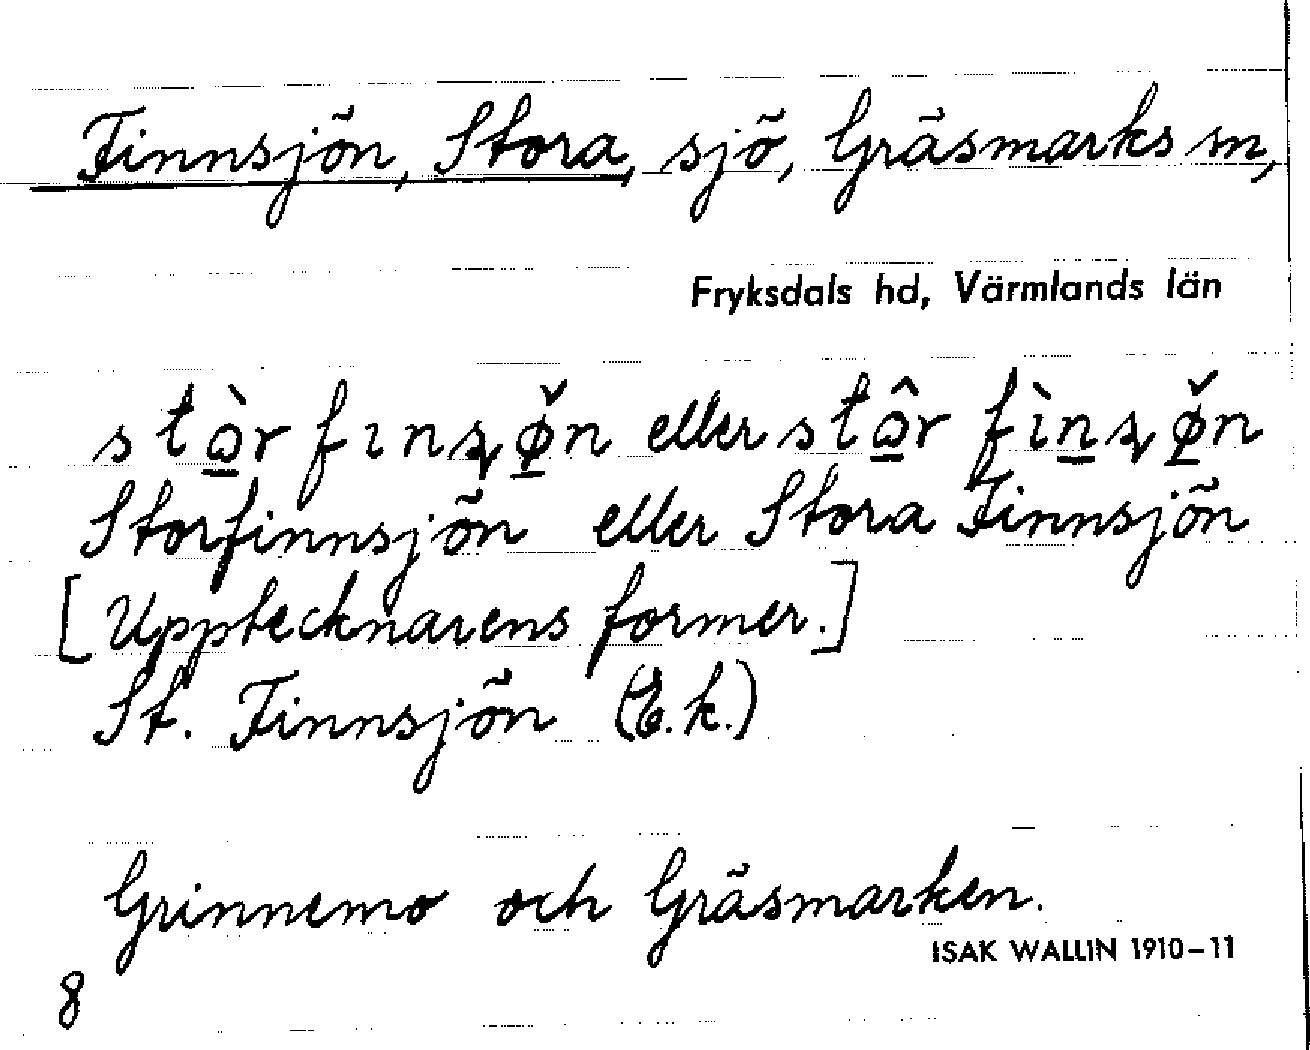 Finnsjön, Stora, sjö, Gräsmarks sn,
Fryksdals hd, Värmlands län
stὼ̱r fınʂø̱̌n eller stω̱̂r fìṉʂø̱̌n
Storfinnsjön eller Stora Finnsjön
[Upptecknarens former.]
St. Finnsjön (E.k.)
Grinnemo och Gräsmarken.
ISAK WALLIN 1910–11
8